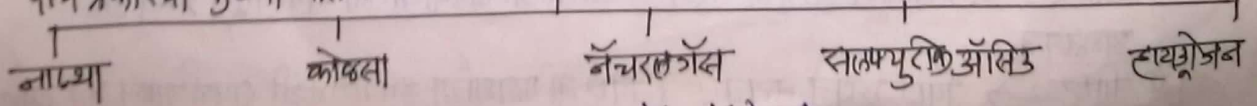 नाफ्था कोळसा नॅचरलगॅस सलफ्युरिक ॲसिड हायड्रोजन